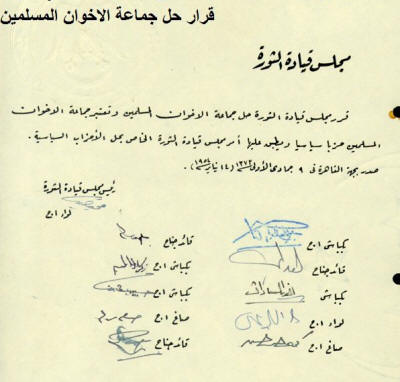 قرار حل جماعة الاخوان المسلمين
مجلس قيادة الثورة
قرر مجلس قيادة الثورة حل جماعة الاخوان المسلمين وتعتبر جماعة الاخوان
المسلمين حزبا سياسيا ويطبق عليها أمر مجلس قيادة الثورة الخاص بحل الأحزاب السياسية .
صدر بجهة القاهرة فى ٩ جمادى الأولى ١٣٧٣ (١٤ يناير ١٩٥٤) .
رئيس مجلس قيادة الثورة
لواء ا ح
بكباشى ا ح قائد جناح
قائد جناح بكباشى ا ح
بكباشى بكباشى ا ح
لواء ا ح صاغ ا ح
صاغ ا ح قائد جناح